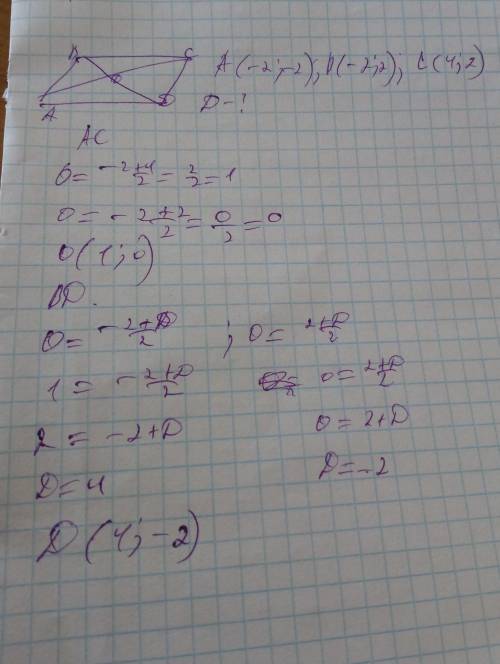 B C
A D
A(-2;-2); B(-2;2); C(4;2)
D-?
AC
O = -2+4/2 = 2/2 = 1
O = -2+2/2 = 0/2 = 0
O(1;0)
BD.
O = -2+D/2 ; O = 2+D/2
1 = -2+D/2 0 = 2+D/2
2 = -2+D 0 = 2+D
D = 4 D = -2
D(4;-2)